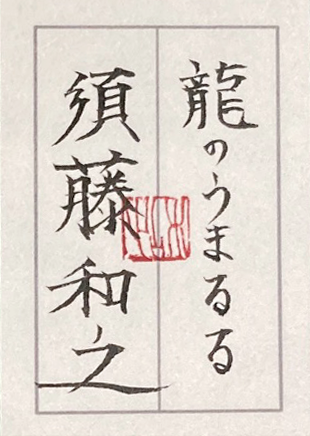 龍のうまるる
須藤和之